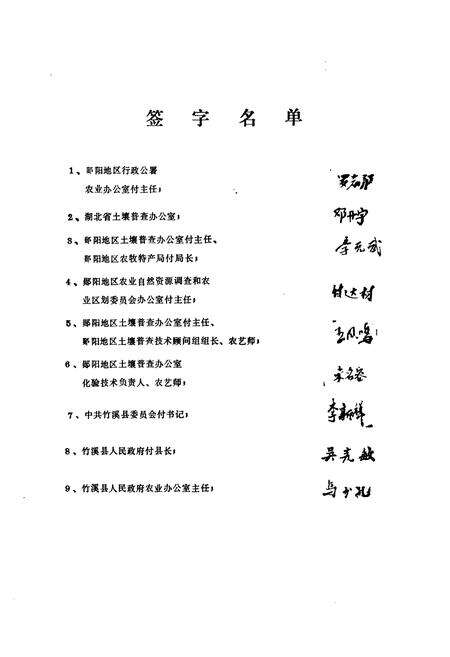 签字名单
1、郧阳地区行政公署
农业办公室付主任；
2、湖北省土壤普查办公室；
邓丹宇
3、郧阳地区土壤普查办公室付主任、
郧阳地区农牧特产局付局长；
4、郧阳地区农业自然资源调查和农
业区划委员会办公室付主任；
甘达材
5、郧阳地区土壤普查办公室付主任、
郧阳地区土壤普查技术顾问组组长、农艺师；
王凤鸣
6、郧阳地区土壤普查办公室
化验技术负责人、农艺师；
7、中共竹溪县委员会付书记；
8、竹溪县人民政府付县长；
吴克敏
9、竹溪县人民政府农业办公室主任；